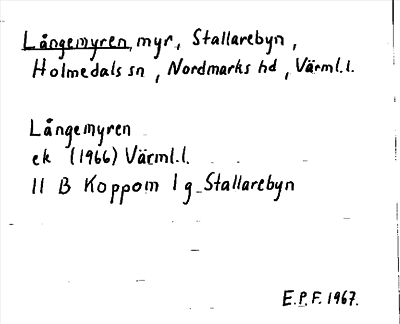 Långemyren, myr, Stallarebyn,
Holmedals sn, Nordmarks hd, Värml.l.
Långemyren
ek (1966) Värml.l.
11 B Koppom 1 g Stallarebyn
E.P.F. 1967.